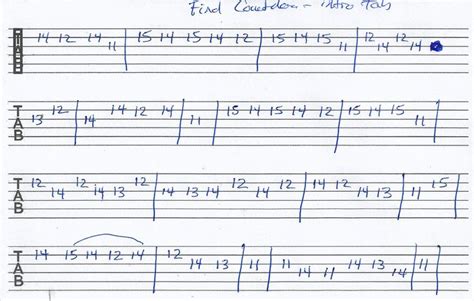 Final Countdown - intro Tab
14 12 14 11 | 15 14 15 14 12 | 15 14 15 11 | 12 14 12 14
TAB 13 12 | 14 14 12 14 | 11 | 15 15 14 12 | 15 14 15 11 |
TAB 12 14 12 14 13 12 | 14 13 14 12 | 12 14 13 12 | 11 15 |
TAB 14 15 14 12 14 | 12 14 13 | 11 | 11 14 11 11 14 13 14 | 11